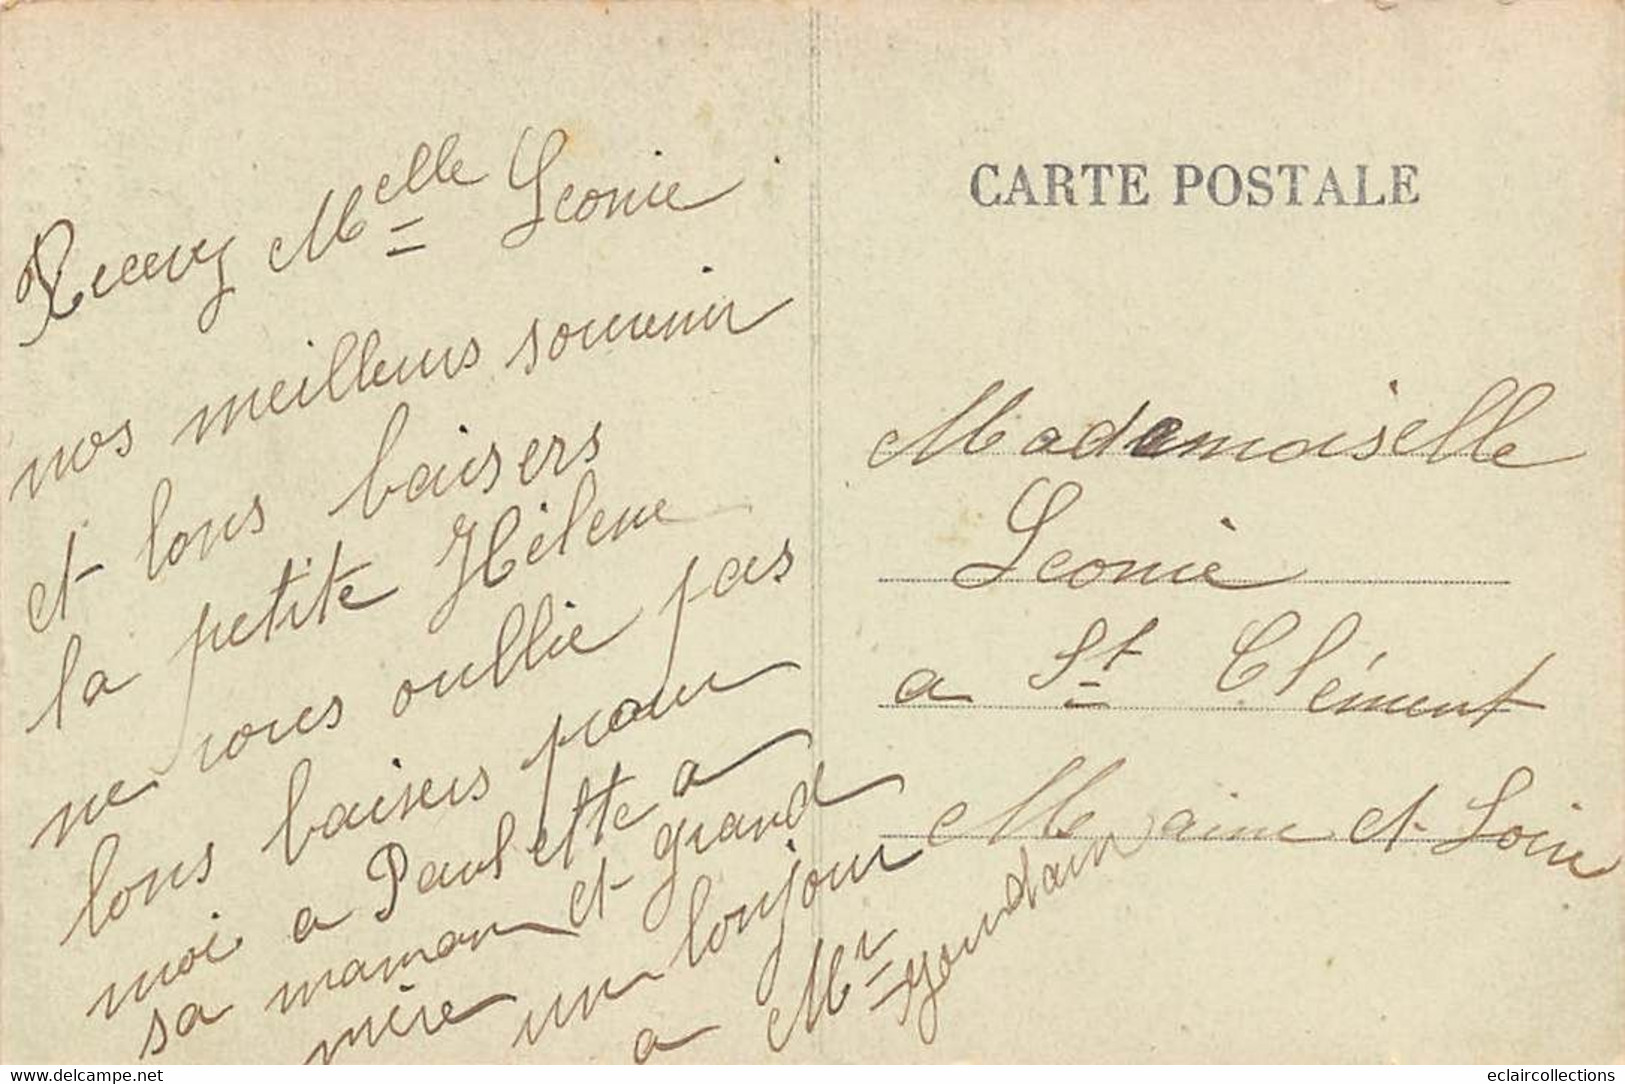 Recevez Melle Leonie
nos meilleurs souvenir
et bons baisers
la petite Hélene
ne vous oublie pas
bons baisers pour
moi a Paulette a
sa maman et grand
mère un bonjour
a Mr Jourdain
CARTE POSTALE
Mademoiselle
Leonie
a St Clément
Maine et Loire
www.delcampe.net
eclaircollections